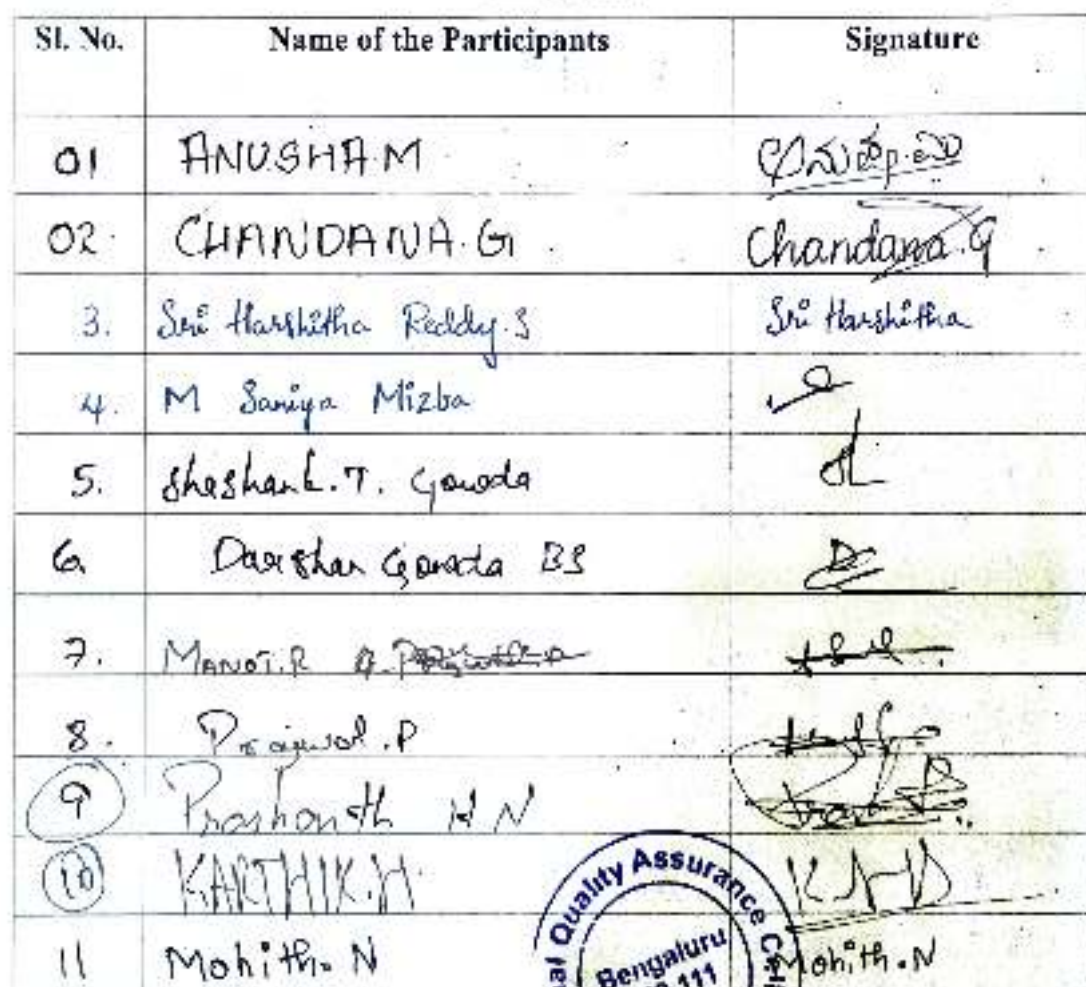 Sl. No. Name of the Participants Signature
01 ANUSHA.M ಅನುಷಾ.ಎಂ
02. CHANDANA.G Chandana.G
3. Sri Harshitha Reddy.S Sri Harshitha
4. M Saniya Mizba
5. Shashank.T. Gowda
6. Darshan Gowda BS
7. MANOJ.R
8. Prajwal.P
9 Prashanth H N
10 KARTHIK.H
11 Mohith.N Mohith.N
Quality Assurance
Bengaluru